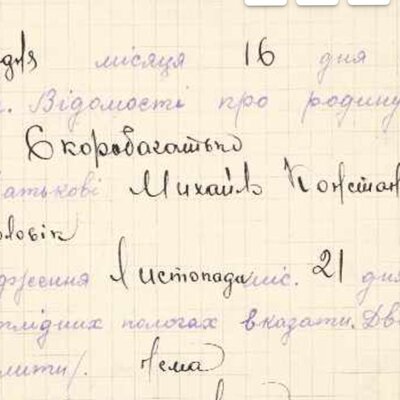 дня місяця 16 дня
. Відомості про родину
Скоробагатько
батькові Михайль Констан
оловік
дження Листопада міс. 21 дня
плідних пологах вказати. Дв
лити/. Нема